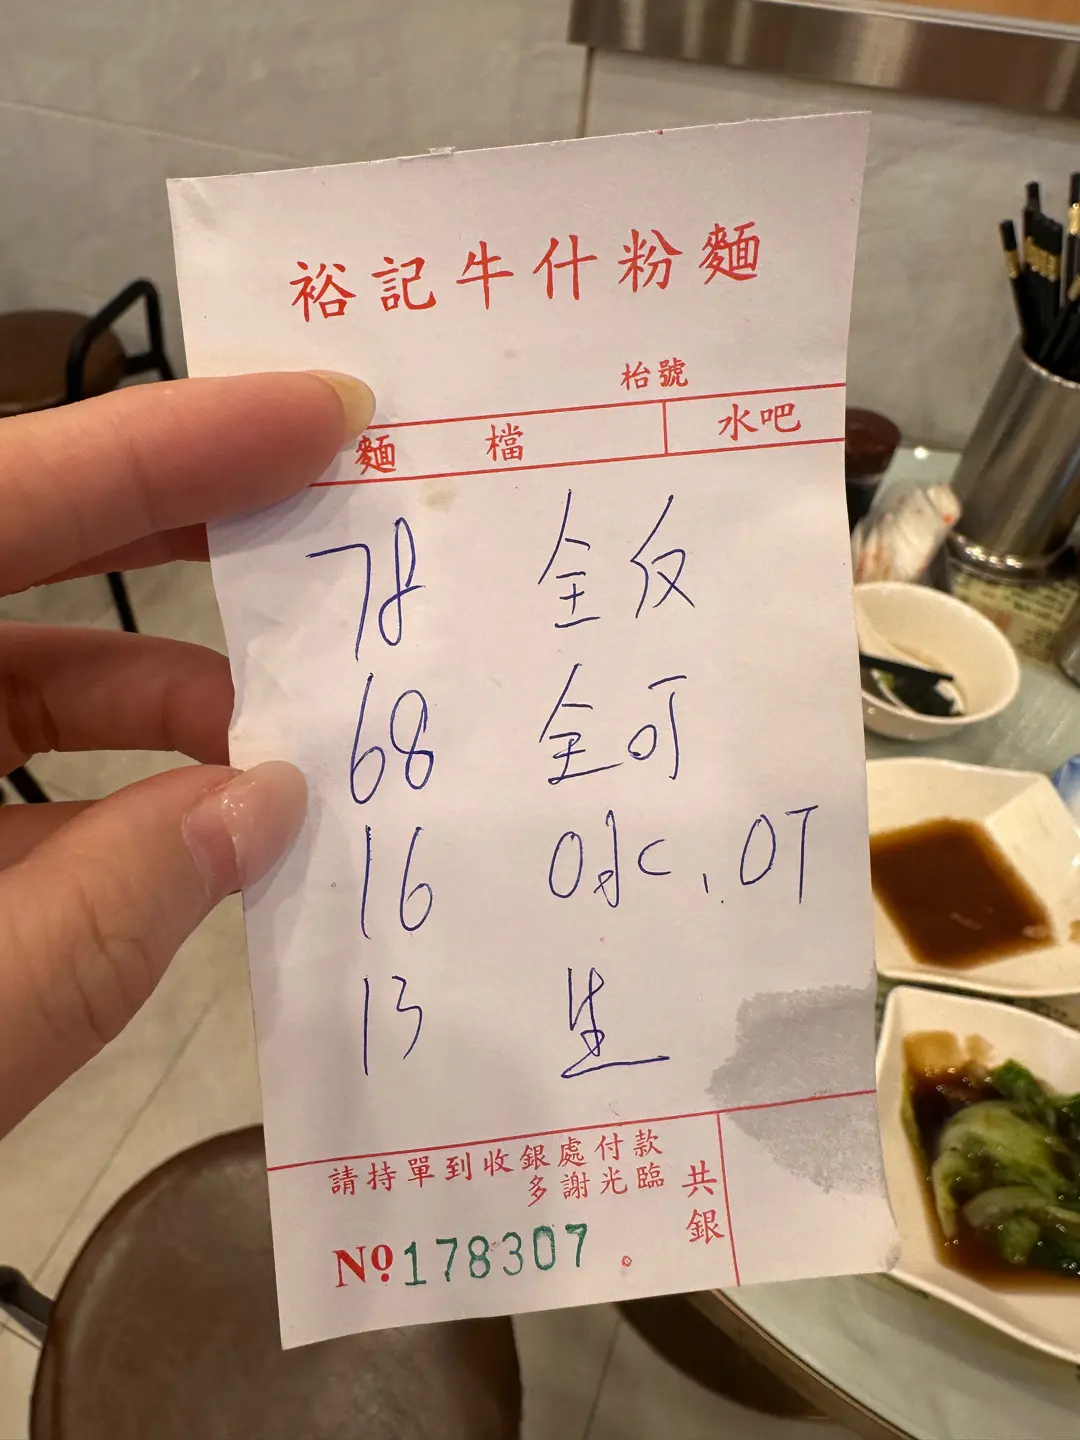 裕記牛什粉麵
枱號
麵檔 水吧
78 全反
68 全可
16 0水C、OT
13 生
請持單到收銀處付款
多謝光臨
共銀
Nº 178307